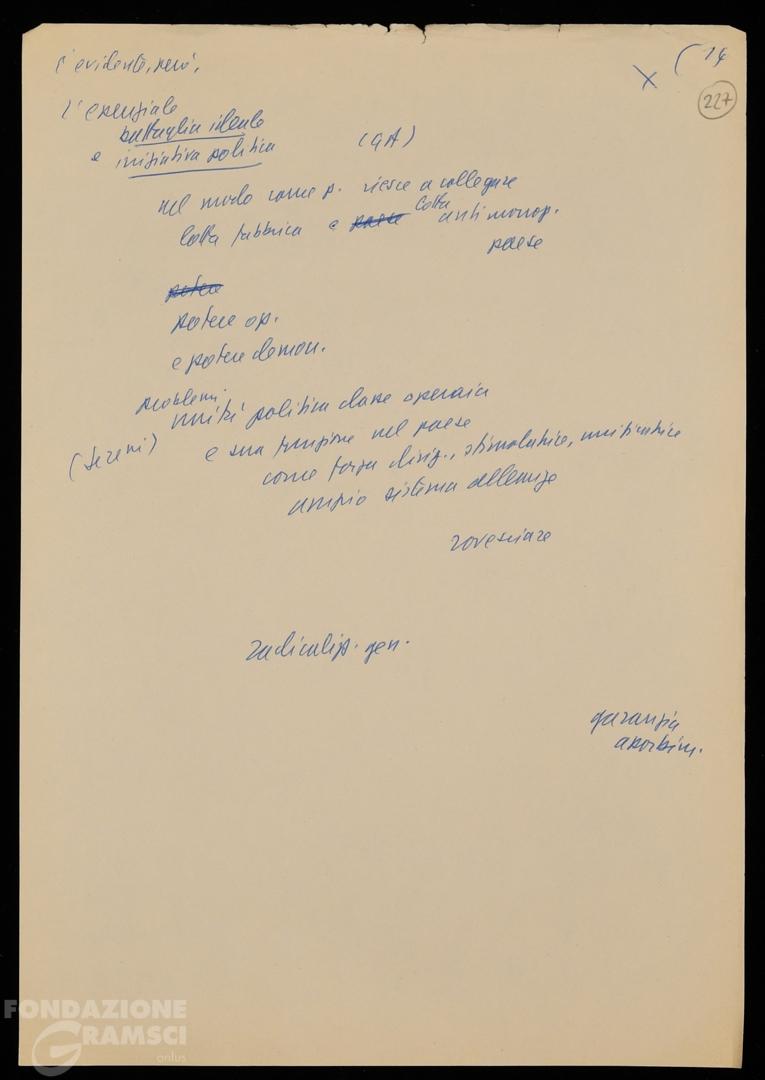 è evidente, però,
( 14
X
227
l'essenziale
battaglia ideale
e iniziativa politica
(GA)
nel modo come p. riesce a collegare
lotta fabbrica e paese lotta antimonop.
paese
potere
potere op.
e potere democr.
problemi
unità politica classe operaia
(Sereni) e sua funzione nel paese
come forza dirig., stimolatrice, unificatrice
ampio sistema alleanze
rovesciare
radicalizz. gen.
garanzia
assorbim.
FONDAZIONE
GRAMSCI
onlus